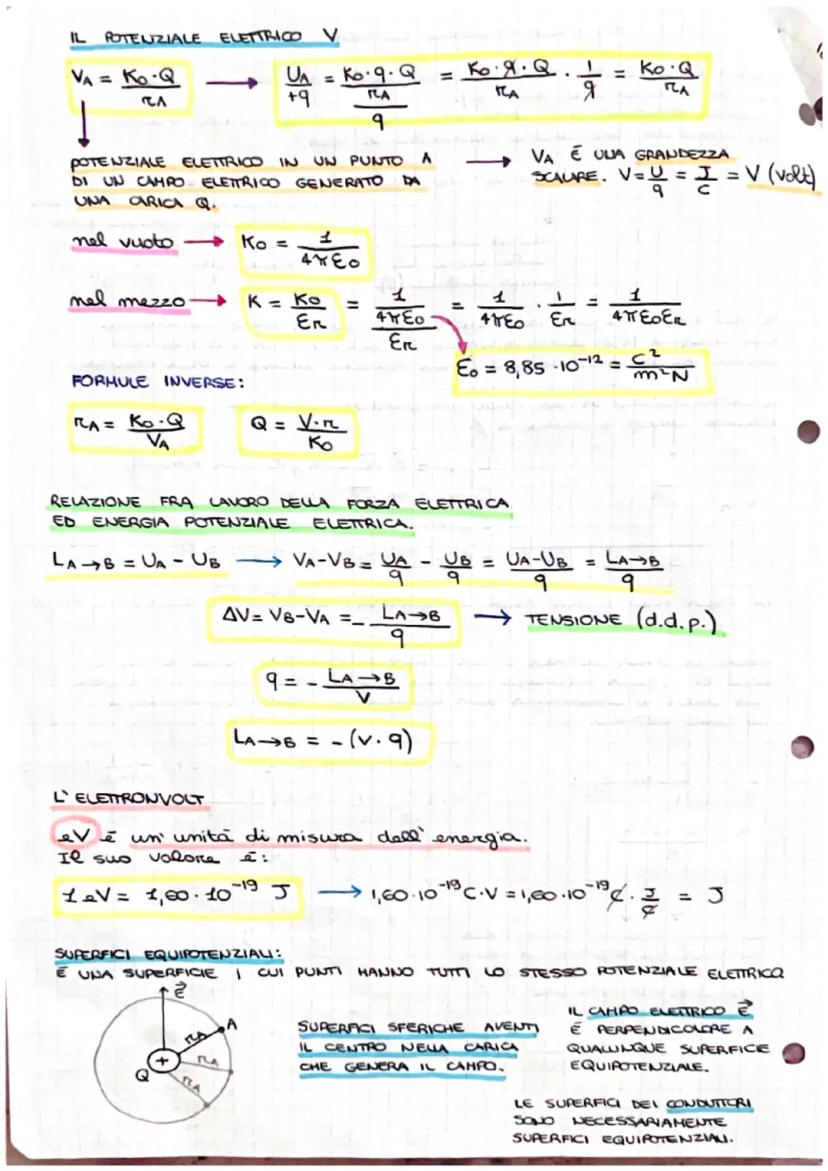 IL POTENZIALE ELETTRICO V
VA = K0·Q / rA → UA / +q = K0·q·Q / rA / q = K0·q·Q / rA · 1 / q = K0·Q / rA
POTENZIALE ELETTRICO IN UN PUNTO A → VA È UNA GRANDEZZA
DI UN CAMPO ELETTRICO GENERATO DA SCALARE. V = U / q = J / C = V (volt)
UNA CARICA Q.
nel vuoto → K0 = 1 / 4πε0
nel mezzo → K = K0 / εr = 1 / 4πε0 / εr = 1 / 4πε0 · 1 / εr = 1 / 4πε0εr
ε0 = 8,85 · 10⁻¹² = C² / m²N
FORMULE INVERSE:
rA = K0·Q / VA Q = V·r / K0
RELAZIONE FRA LAVORO DELLA FORZA ELETTRICA
ED ENERGIA POTENZIALE ELETTRICA.
LA→B = UA - UB → VA-VB = UA / q - UB / q = UA-UB / q = LA→B / q
ΔV = VB-VA = - LA→B / q → TENSIONE (d.d.p.)
q = - LA→B / V
LA→B = - (V · q)
L'ELETTRONVOLT
eV è un'unità di misura dell'energia.
Il suo valore è:
1 eV = 1,60 · 10⁻¹⁹ J → 1,60·10⁻¹⁹ C·V = 1,60·10⁻¹⁹ C · J / C = J
SUPERFICI EQUIPOTENZIALI:
È UNA SUPERFICIE I CUI PUNTI HANNO TUTTI LO STESSO POTENZIALE ELETTRICO
E⃗
A
rA
rA
rA
+
Q
SUPERFICI SFERICHE AVENTI
IL CENTRO NELLA CARICA
CHE GENERA IL CAMPO.
IL CAMPO ELETTRICO E⃗
È PERPENDICOLARE A
QUALUNQUE SUPERFICIE
EQUIPOTENZIALE.
LE SUPERFICI DEI CONDUTTORI
SONO NECESSARIAMENTE
SUPERFICI EQUIPOTENZIALI.